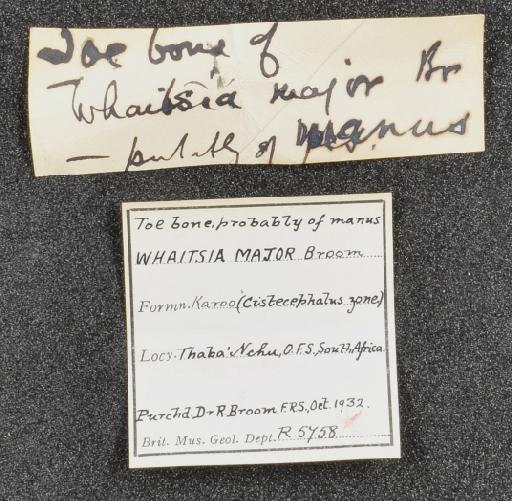 Toe bone of
Whaitsia major Br
— probably of manus
Toe bone, probably of manus
WHAITSIA MAJOR Broom
Formn. Karoo (Cistecephalus zone)
Locy. Thaba' Nchu, O.F.S., South Africa
Purchd. Dr R. Broom F.R.S., Oct. 1932.
Brit. Mus. Geol. Dept. R 5758